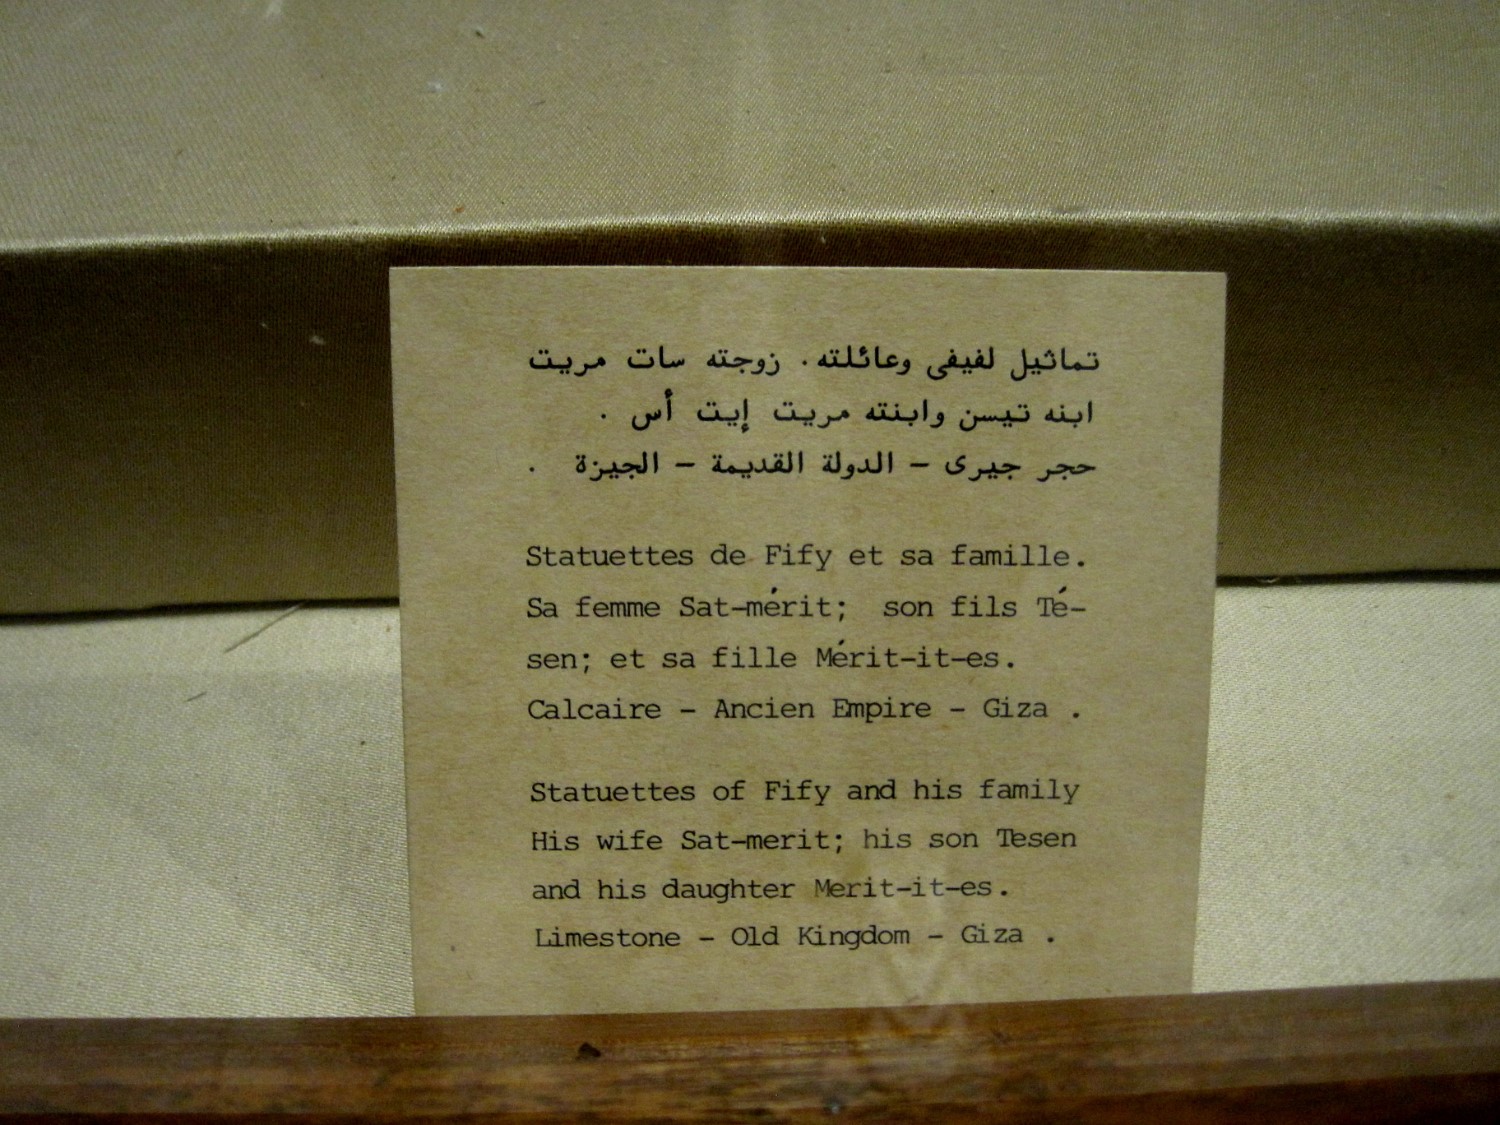 تماثيل لفيفى وعائلته . زوجته سات مريت
ابنه تيسن وابنته مريت إيت أس .
حجر جيرى – الدولة القديمة – الجيزة .
Statuettes de Fify et sa famille.
Sa femme Sat-mérit; son fils Té-
sen; et sa fille Mérit-it-es.
Calcaire - Ancien Empire - Giza .
Statuettes of Fify and his family
His wife Sat-merit; his son Tesen
and his daughter Merit-it-es.
Limestone - Old Kingdom - Giza .